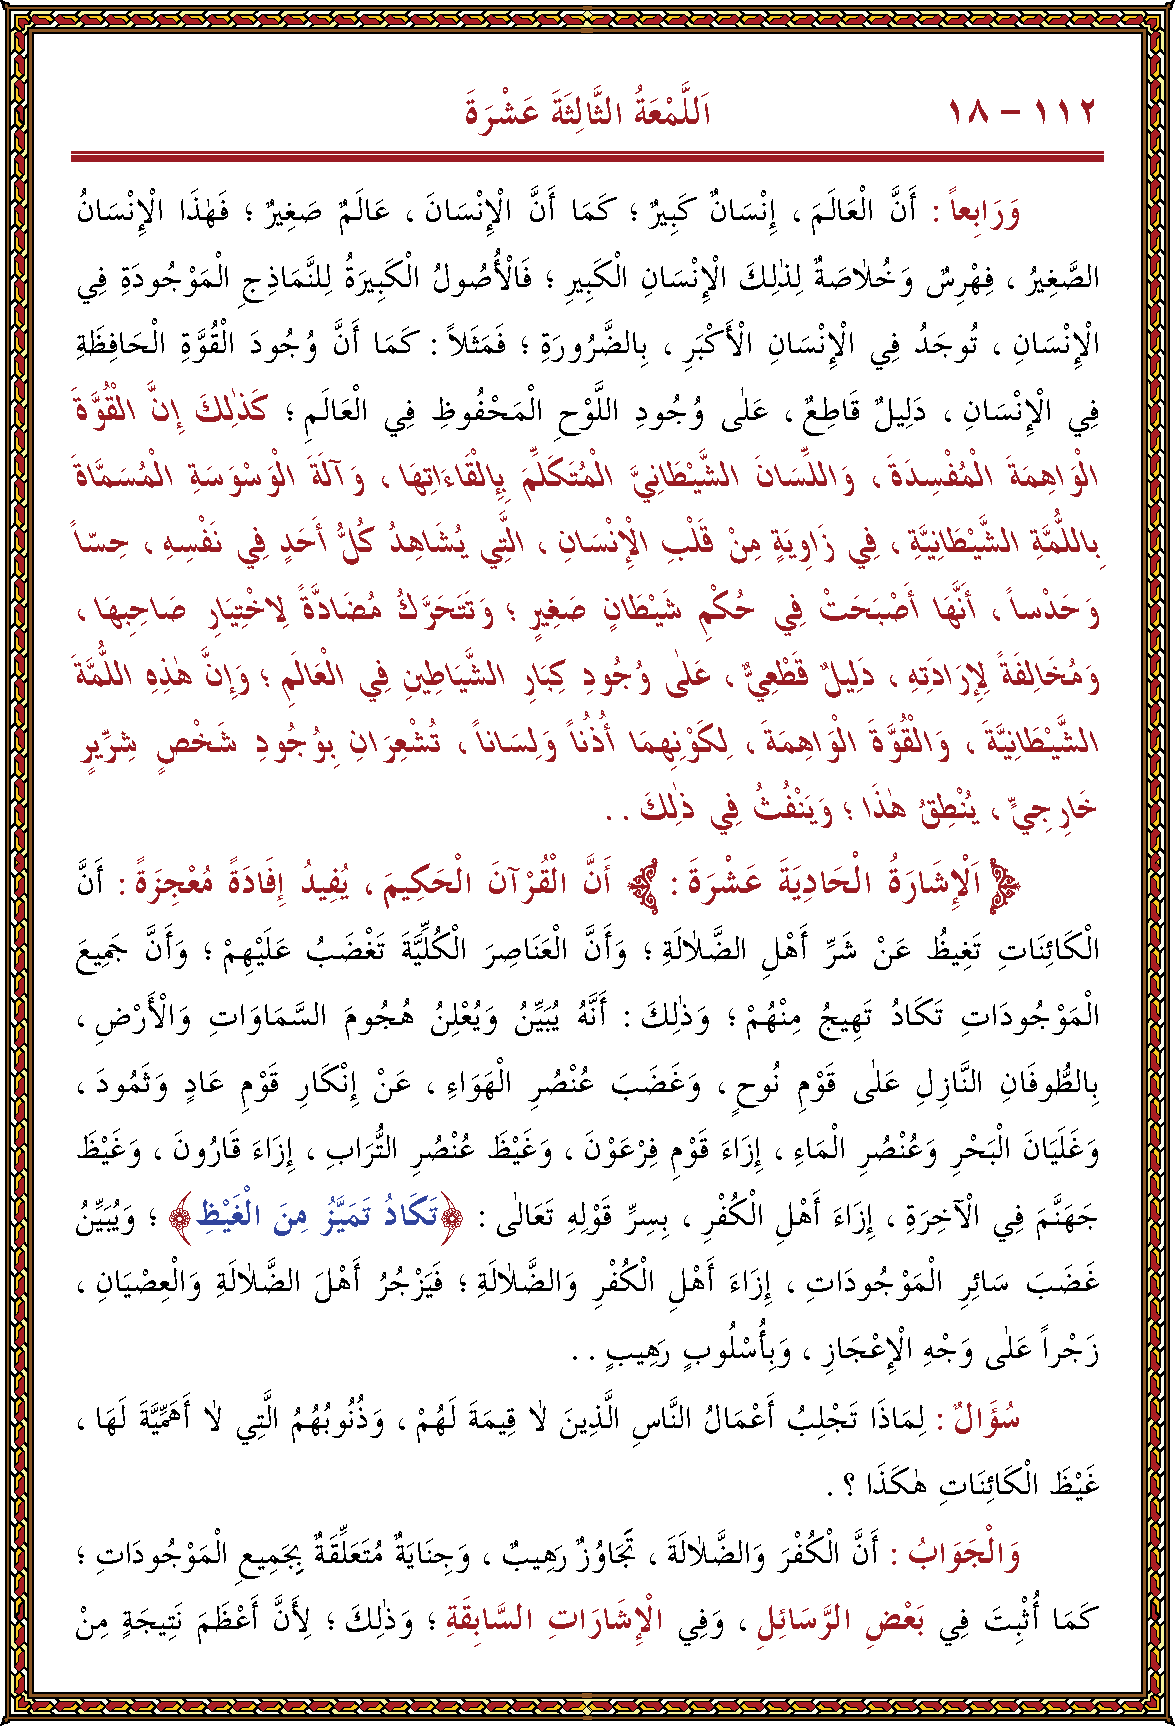 ١١٢ – ١٨ اَللَّمْعَةُ الثَّالِثَةَ عَشْرَةَ
وَرَابِعاً : أَنَّ الْعَالَمَ ، إِنْسَانٌ كَبِيرٌ ؛ كَمَا أَنَّ الْإِنْسَانَ ، عَالَمٌ صَغِيرٌ ؛ فَهٰذَا الْإِنْسَانُ
الصَّغِيرُ ، فِهْرِسٌ وَخُلَاصَةٌ لِذٰلِكَ الْإِنْسَانِ الْكَبِيرِ ؛ فَالْأُصُولُ الْكَبِيرَةُ لِلنَّمَاذِجِ الْمَوْجُودَةِ فِي
الْإِنْسَانِ ، تُوجَدُ فِي الْإِنْسَانِ الْأَكْبَرِ ، بِالضَّرُورَةِ ؛ فَمَثَلاً : كَمَا أَنَّ وُجُودَ الْقُوَّةِ الْحَافِظَةِ
فِي الْإِنْسَانِ ، دَلِيلٌ قَاطِعٌ ، عَلٰى وُجُودِ اللَّوْحِ الْمَحْفُوظِ فِي الْعَالَمِ ؛ كَذٰلِكَ إِنَّ الْقُوَّةَ
الْوَاهِمَةَ الْمُفْسِدَةَ ، وَاللِّسَانَ الشَّيْطَانِيَّ الْمُتَكَلِّمَ بِإِلْقَاءَاتِهَا ، وَآلَةَ الْوَسْوَسَةِ الْمُسَمَّاةَ
بِاللُّمَّةِ الشَّيْطَانِيَّةِ ، فِي زَاوِيَةٍ مِنْ قَلْبِ الْإِنْسَانِ ، الَّتِي يُشَاهِدُ كُلُّ أَحَدٍ فِي نَفْسِهِ ، حِسّاً
وَحَدْساً ، أَنَّهَا أَصْبَحَتْ فِي حُكْمِ شَيْطَانٍ صَغِيرٍ ؛ وَتَتَحَرَّكُ مُضَادَّةً لِاخْتِيَارِ صَاحِبِهَا ،
وَمُخَالِفَةً لِإِرَادَتِهِ ، دَلِيلٌ قَطْعِيٌّ ، عَلٰى وُجُودِ كِبَارِ الشَّيَاطِينِ فِي الْعَالَمِ ؛ وَإِنَّ هٰذِهِ اللُّمَّةَ
الشَّيْطَانِيَّةَ ، وَالْقُوَّةَ الْوَاهِمَةَ ، لِكَوْنِهِمَا أُذُناً وَلِسَاناً ، تُشْعِرَانِ بِوُجُودِ شَخْصٍ شِرِّيرٍ
خَارِجِيٍّ ، يُنْطِقُ هٰذَا ؛ وَيَنْفُثُ فِي ذٰلِكَ . .
﴿ اَلْإِشَارَةُ الْحَادِيَةَ عَشْرَةَ : ﴾ أَنَّ الْقُرْآنَ الْحَكِيمَ ، يُفِيدُ إِفَادَةً مُعْجِزَةً : أَنَّ
الْكَائِنَاتِ تَغِيظُ عَنْ شَرِّ أَهْلِ الضَّلَالَةِ ؛ وَأَنَّ الْعَنَاصِرَ الْكُلِّيَّةَ تَغْضَبُ عَلَيْهِمْ ؛ وَأَنَّ جَمِيعَ
الْمَوْجُودَاتِ تَكَادُ تَهِيجُ مِنْهُمْ ؛ وَذٰلِكَ : أَنَّهُ يُبَيِّنُ وَيُعْلِنُ هُجُومَ السَّمَاوَاتِ وَالْأَرْضِ ،
بِالطُّوفَانِ النَّازِلِ عَلٰى قَوْمِ نُوحٍ ، وَغَضَبَ عُنْصُرِ الْهَوَاءِ ، عَنْ إِنْكَارِ قَوْمِ عَادٍ وَثَمُودَ ،
وَغَلَيَانَ الْبَحْرِ وَعُنْصُرِ الْمَاءِ ، إِزَاءَ قَوْمِ فِرْعَوْنَ ، وَغَيْظَ عُنْصُرِ التُّرَابِ ، إِزَاءَ قَارُونَ ، وَغَيْظَ
جَهَنَّمَ فِي الْآخِرَةِ ، إِزَاءَ أَهْلِ الْكُفْرِ ، بِسِرِّ قَوْلِهِ تَعَالٰى : ﴿تَكَادُ تَمَيَّزُ مِنَ الْغَيْظِ﴾ ؛ وَيُبَيِّنُ
غَضَبَ سَائِرِ الْمَوْجُودَاتِ ، إِزَاءَ أَهْلِ الْكُفْرِ وَالضَّلَالَةِ ؛ فَيَزْجُرُ أَهْلَ الضَّلَالَةِ وَالْعِصْيَانِ ،
زَجْراً عَلٰى وَجْهِ الْإِعْجَازِ ، وَبِأُسْلُوبٍ رَهِيبٍ . .
سُؤَالٌ : لِمَاذَا تَجْلِبُ أَعْمَالُ النَّاسِ الَّذِينَ لَا قِيمَةَ لَهُمْ ، وَذُنُوبُهُمُ الَّتِي لَا أَهَمِّيَّةَ لَهَا ،
غَيْظَ الْكَائِنَاتِ هٰكَذَا ؟ .
وَالْجَوَابُ : أَنَّ الْكُفْرَ وَالضَّلَالَةَ ، تَجَاوُزٌ رَهِيبٌ ، وَجِنَايَةٌ مُتَعَلِّقَةٌ بِجَمِيعِ الْمَوْجُودَاتِ ؛
كَمَا أُثْبِتَ فِي بَعْضِ الرَّسَائِلِ ، وَفِي الْإِشَارَاتِ السَّابِقَةِ ؛ وَذٰلِكَ ؛ لِأَنَّ أَعْظَمَ نَتِيجَةٍ مِنْ